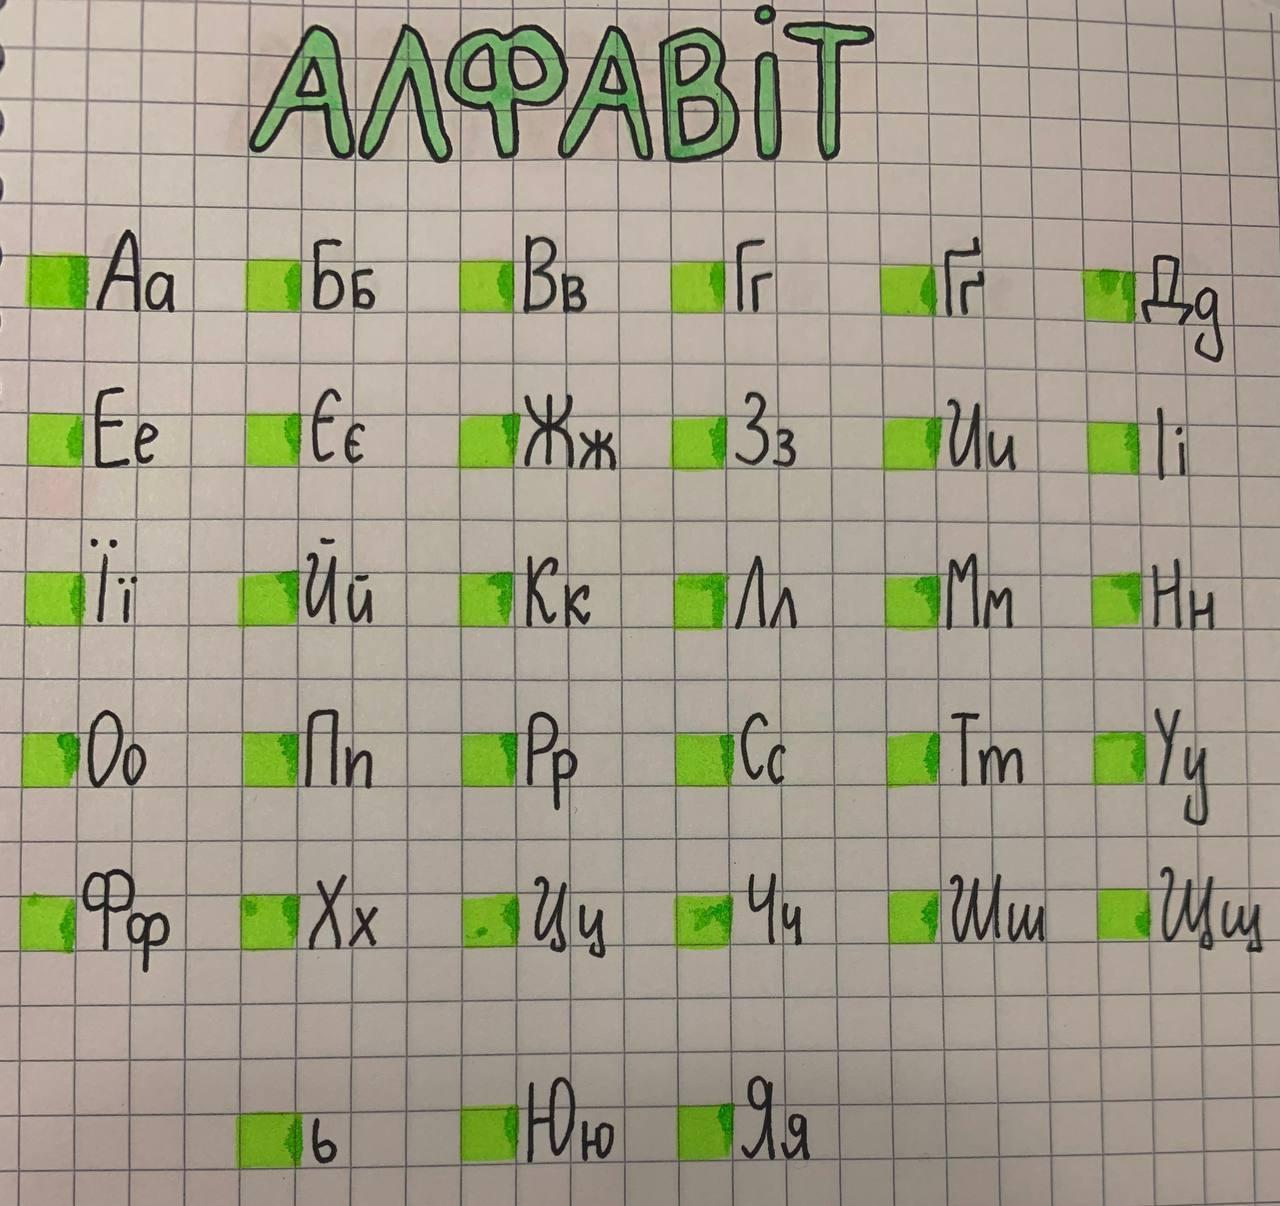 АЛФАВіТ
Аа Бб Вв Гг Ґґ Дд
Ее Єє Жж Зз Ии Іі
Її Йй Кк Лл Мм Нн
Оо Пп Рр Сс Тт Уу
Фф Хх Цц Чч Шш Щщ
ь Юю Яя